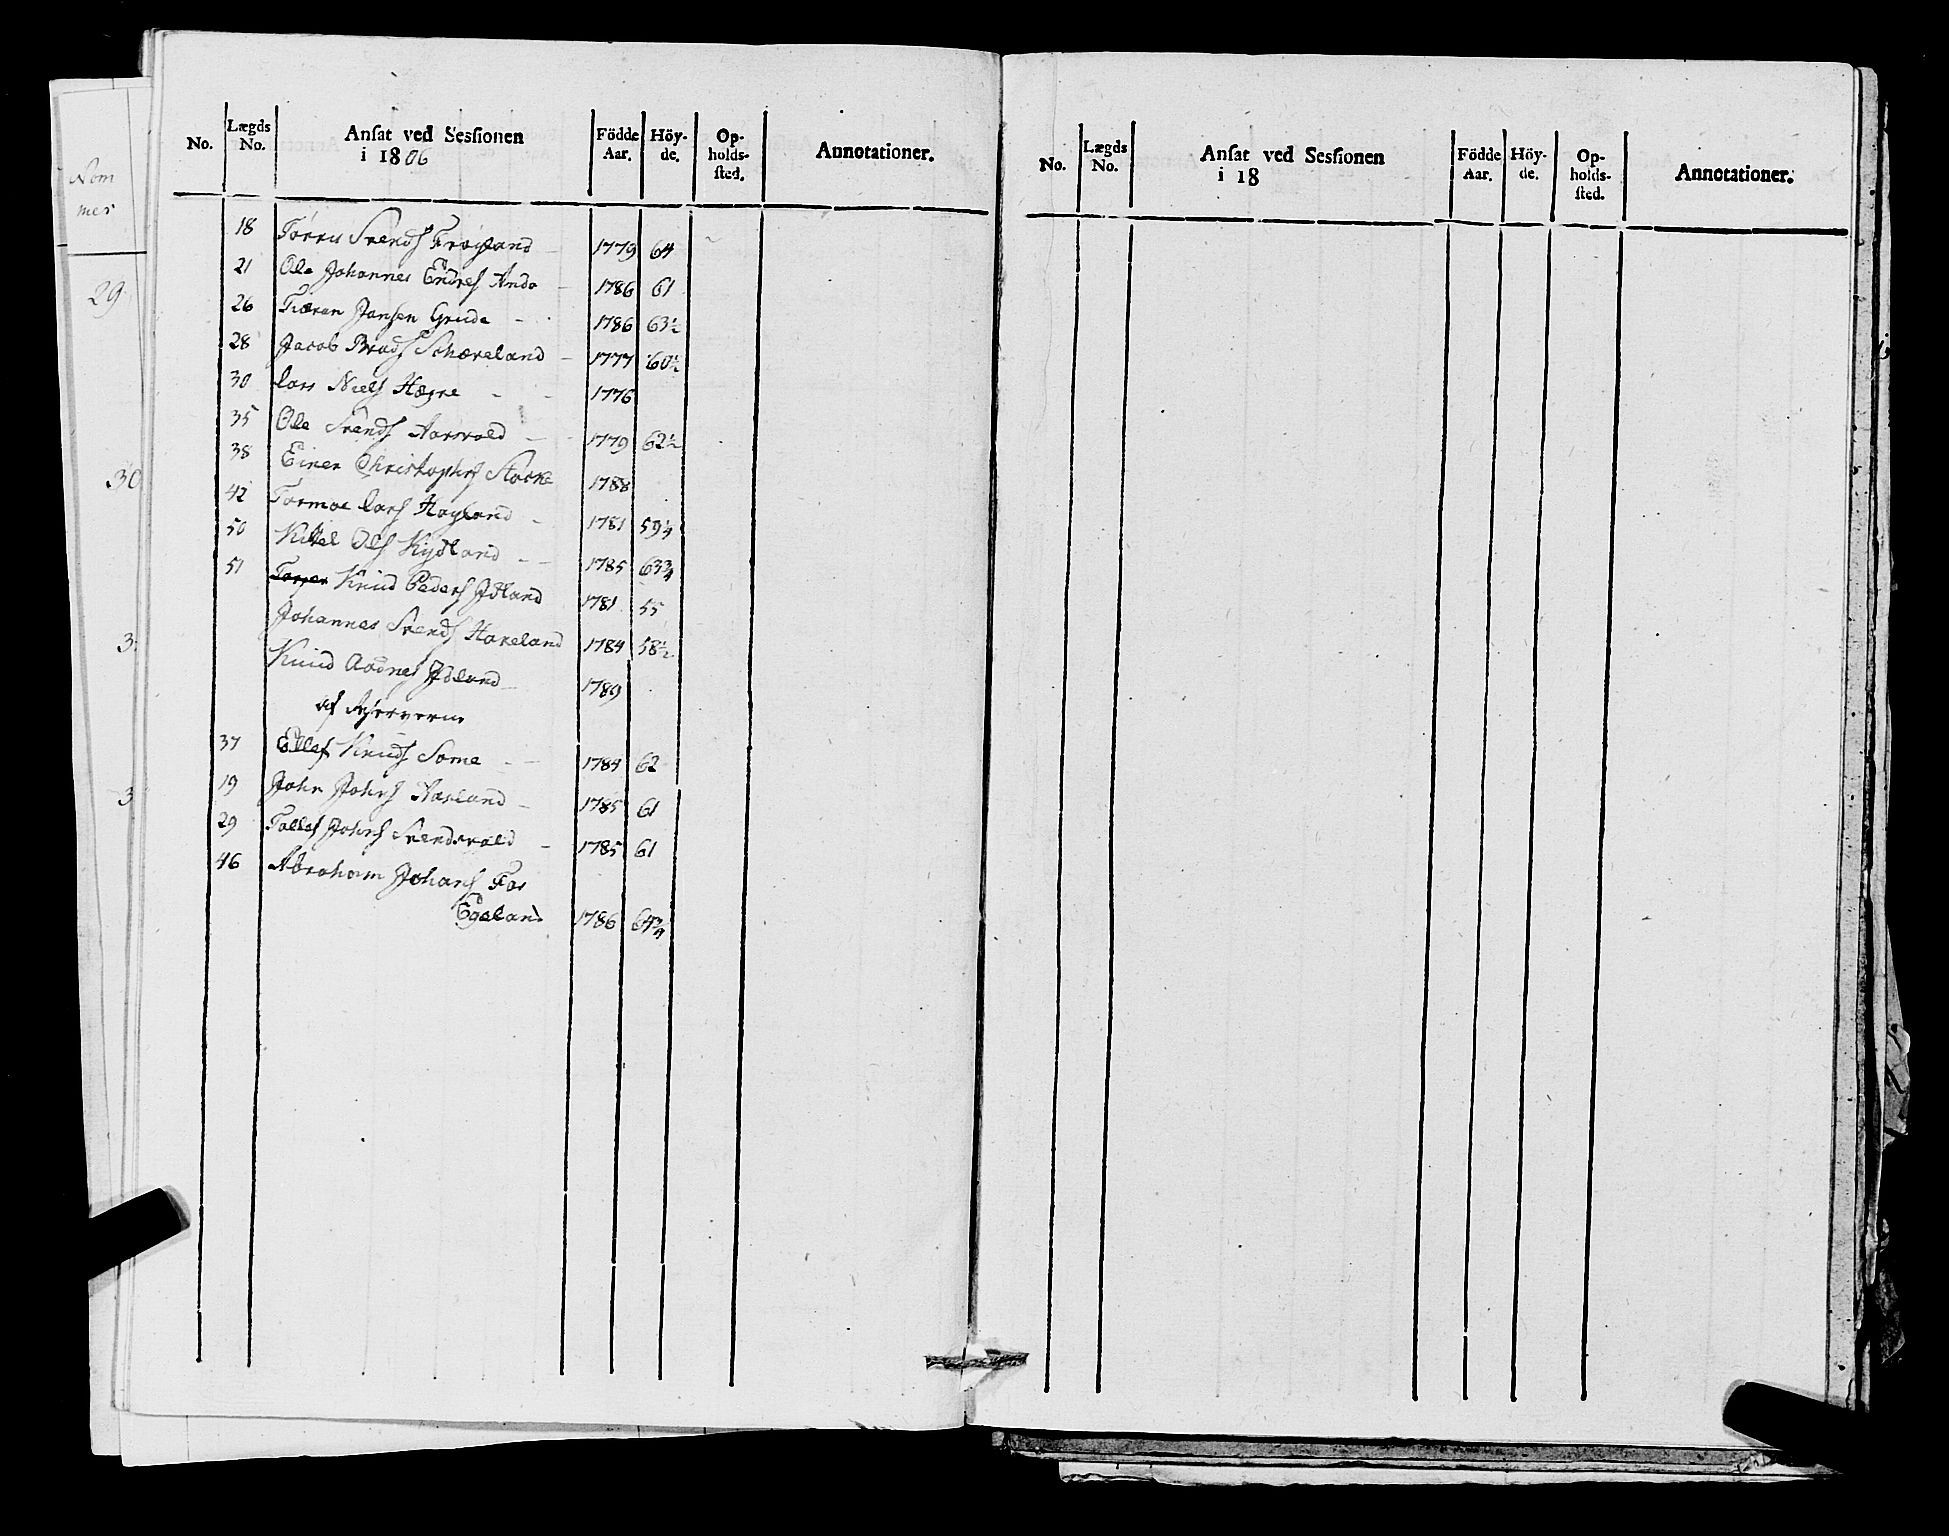 Nom
mer
29
30
3
3
No. Lægds No. Ansat ved Sessionen i 1806 Födde Aar. Höy-de. Op-holds-sted. Annotationer.
18 Törris Svends Frøyland 1779 64
21 Ole Johannes Endres Anda 1786 61
26 Tiæran Jansen Grude 1786 63½
28 Jacob Brads Schæreland 1777 60½
30 Lars Niels Hægre 1776
35 Ole Svends Aarsvold 1779 62½
38 Einer Christophs 1788
42 Tormoe Lars Høyland 1781 59¼
50 Kittel Ols Kydland 1785 63¾
51 Knud Peders Idland 1781 55
Johannes Svends Haveland 1784 58½
Knud Aadnes Idland 1789
af Reserverne
37 Ellef Knuds Some 1784 62
19 John Johns Aasland 1785 61
29 Tollef Johns Svendsvold 1785 61
46 Abraham Johans Fos
Egeland 1786 64¾
No. Lægds No. Ansat ved Sessionen i 18 Födde Aar. Höy-de. Op-holds-sted. Annotationer.